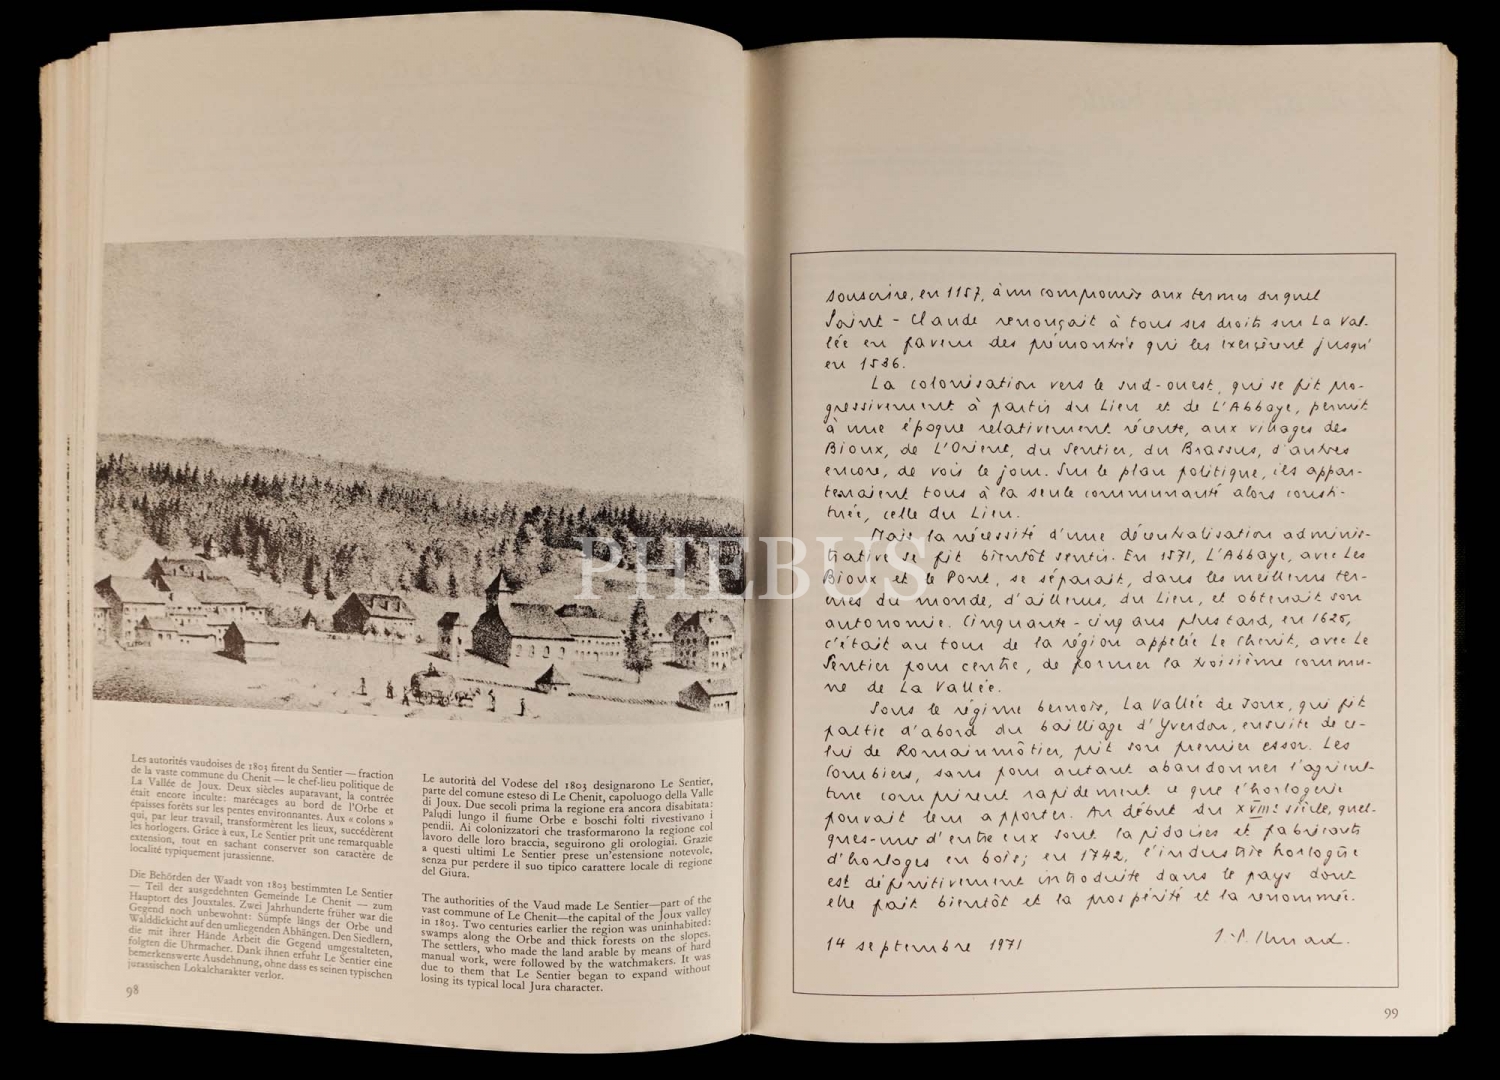 Les autorités vaudoises de 1803 firent du Sentier — fraction
de la vaste commune du Chenit — le chef-lieu politique de
La Vallée de Joux. Deux siècles auparavant, la contrée
était encore inculte: marécages au bord de l'Orbe et
épaisses forêts sur les pentes environnantes. Aux « colons »
qui, par leur travail, transformèrent les lieux, succédèrent
les horlogers. Grâce à eux, Le Sentier prit une remarquable
extension, tout en sachant conserver son caractère de
localité typiquement jurassienne.
Die Behörden der Waadt von 1803 bestimmten Le Sentier
— Teil der ausgedehnten Gemeinde Le Chenit — zum
Hauptort des Jouxtales. Zwei Jahrhunderte früher war die
Gegend noch unbewohnt: Sümpfe längs der Orbe und
Walddickicht auf den umliegenden Abhängen. Den Siedlern,
die mit ihrer Hände Arbeit die Gegend umgestalteten,
folgten die Uhrmacher. Dank ihnen erfuhr Le Sentier eine
bemerkenswerte Ausdehnung, ohne dass es seinen typischen
jurassischen Lokalcharakter verlor.
98
Le autorità del Vodese del 1803 designarono Le Sentier,
parte del comune esteso di Le Chenit, capoluogo della Valle
di Joux. Due secoli prima la regione era ancora disabitata:
Paludi lungo il fiume Orbe e boschi folti rivestivano i
pendii. Ai colonizzatori che trasformarono la regione col
lavoro delle loro braccia, seguirono gli orologiai. Grazie
a questi ultimi Le Sentier prese un'estensione notevole,
senza pur perdere il suo tipico carattere locale di regione
del Giura.
The authorities of the Vaud made Le Sentier—part of the
vast commune of Le Chenit—the capital of the Joux valley
in 1803. Two centuries earlier the region was uninhabited:
swamps along the Orbe and thick forests on the slopes.
The settlers, who made the land arable by means of hard
manual work, were followed by the watchmakers. It was
due to them that Le Sentier began to expand without
losing its typical local Jura character.
PHEBUS
souscrire, en 1157, à un compromis aux termes duquel
Saint-Claude renonçait à tous ses droits sur La Val-
lée en faveur des prémontrés qui les exercèrent jusqu'
en 1536.
La colonisation vers le sud-ouest, qui se fit pro-
gressivement à partir du Lieu et de L'Abbaye, permit
à une époque relativement récente, aux villages des
Bioux, de L'Orient, du Sentier, du Brassus, d'autres
encore, de voir le jour. Sur le plan politique, ils appar-
tenaient tous à la seule communauté alors consti-
tuée, celle du Lieu.
Mais la nécessité d'une décentralisation adminis-
trative se fit bientôt sentir. En 1571, L'Abbaye, avec Les
Bioux et le Pont, se séparait, dans les meilleurs ter-
mes du monde, d'ailleurs, du Lieu, et obtenait son
autonomie. Cinquante-cinq ans plus tard, en 1626,
c'était au tour de la région appelée Le Chenit, avec Le
Sentier pour centre, de former la troisième commu-
ne de La Vallée.
Sous le régime bernois, La Vallée de Joux, qui fit
partie d'abord du bailliage d'Yverdon, ensuite de ce-
lui de Romainmôtier, prit son premier essor. Les
Combiers, sans pour autant abandonner l'agricul-
ture comprirent rapidement ce que l'horlogerie
pouvait leur apporter. Au début du XVIIIe siècle, quel-
ques-uns d'entre eux sont lapidaires et fabricants
d'horloges en bois; en 1742, l'industrie horlogère
est définitivement introduite dans le pays dont
elle fait bientôt et la prospérité et la renommée.
14 septembre 1971
99